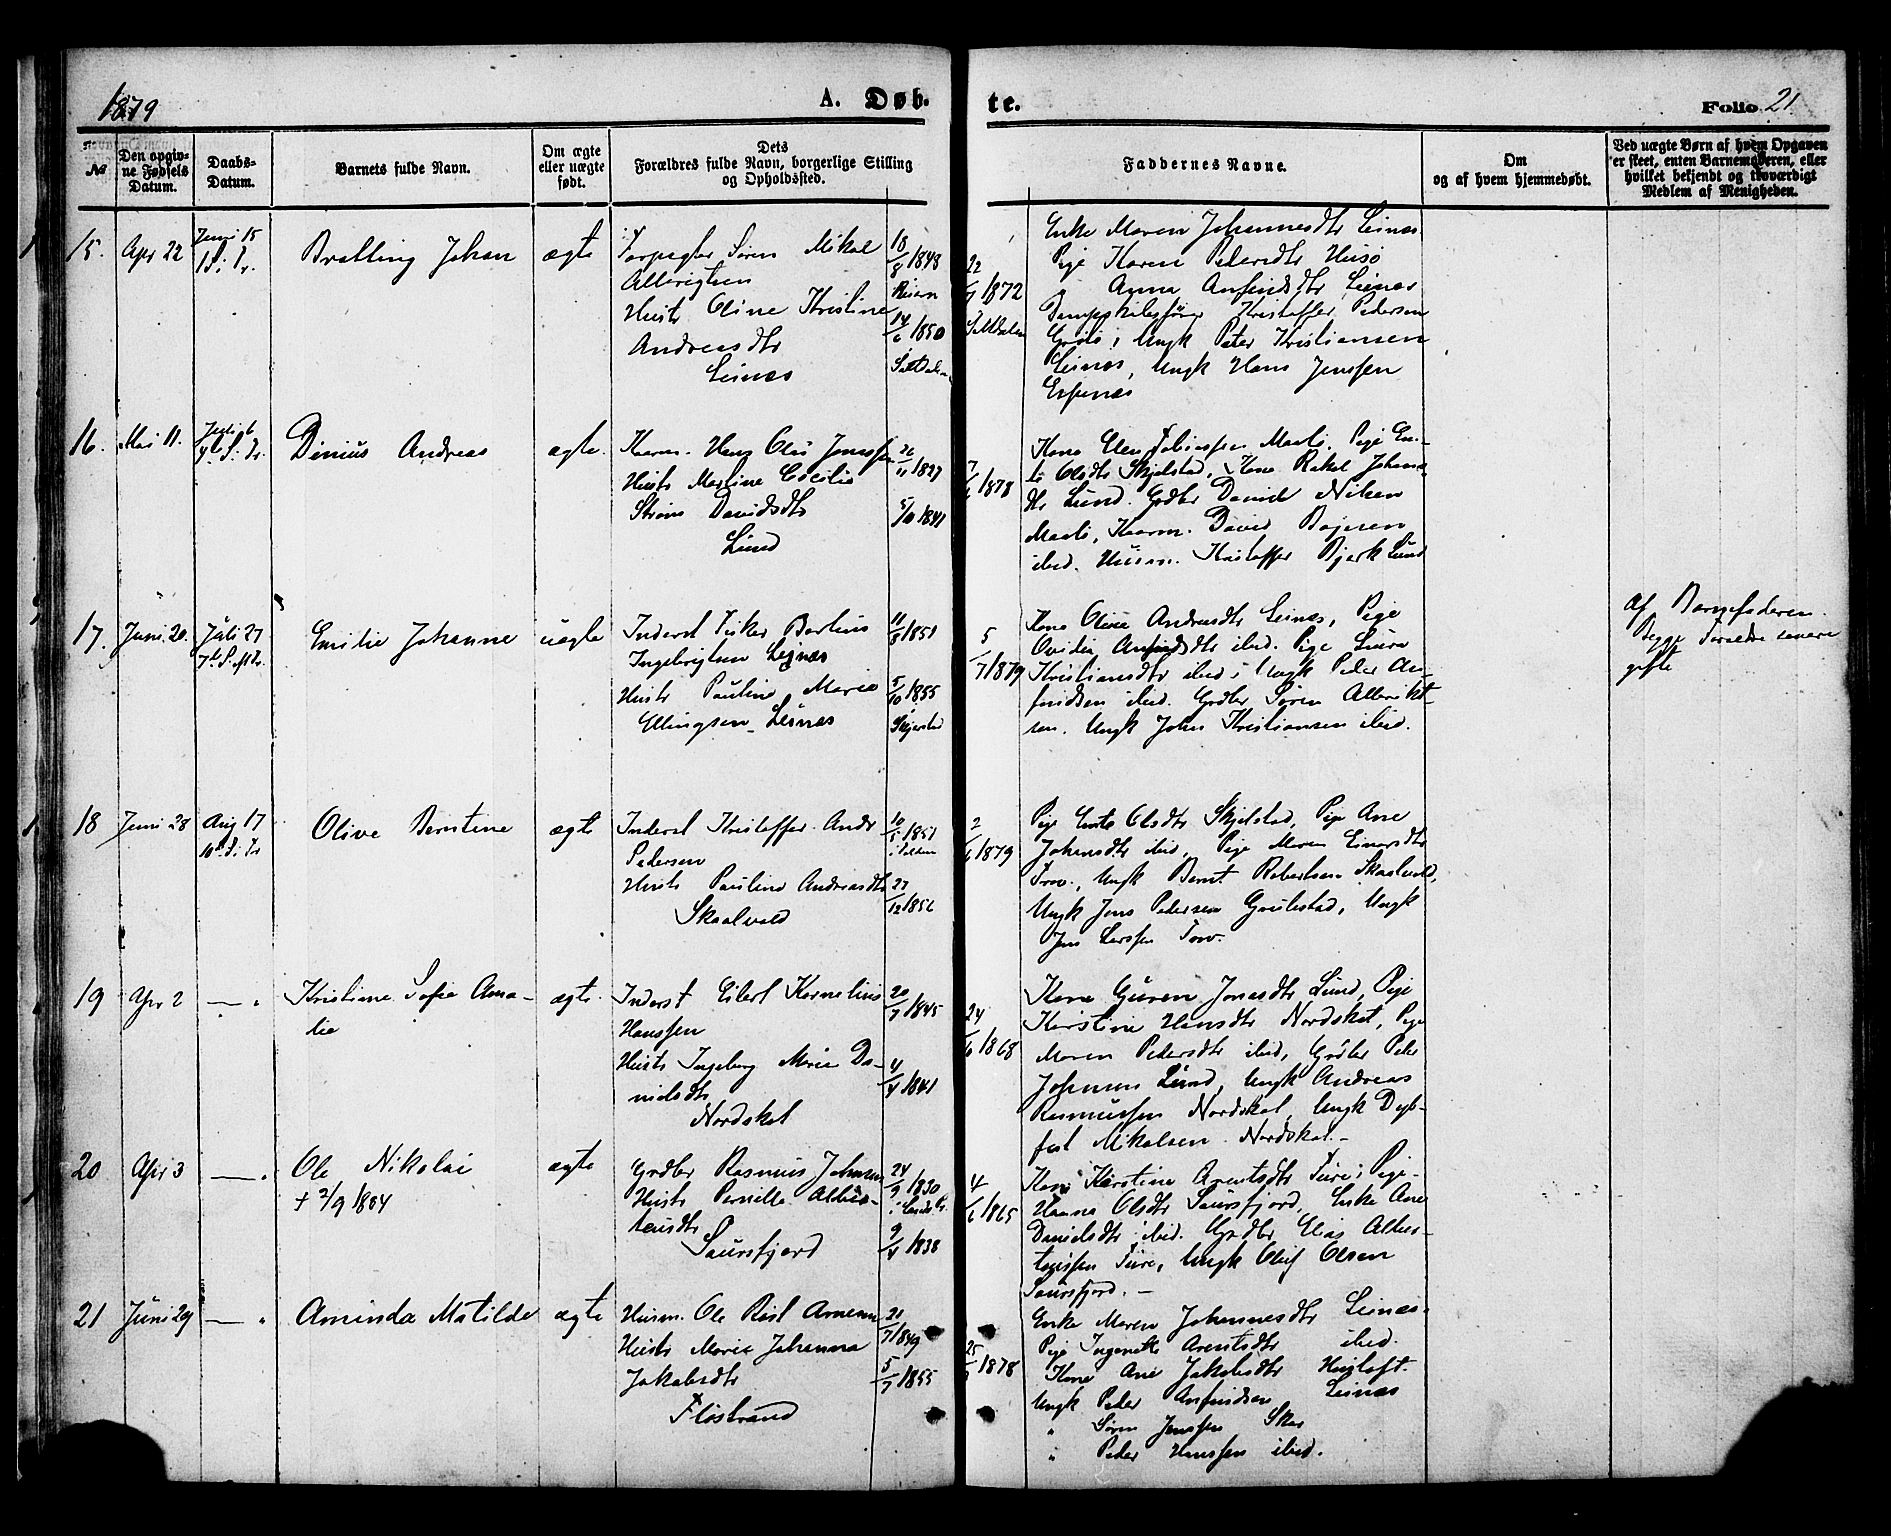 1879
A. Døb-
te.
Folio 21.
№
Den opgiv-
ne Fødsels
Datum.
Daabs-
Datum.
Barnets fulde Navn.
Om ægte
eller uægte
født.
Dets
Forældres fulde Navn, borgerlige Stilling
og Opholdssted.
Faddernes Navne.
Om
og af hvem hjemmedøbt.
Ved uægte Børn af hvem Opgaven
er skeet, enten Barnemoderen, eller
hvilket bekjendt og troværdigt
Medlem af Menigheden.
15. Apr 22 Juni 15
Bratling Johan ægte
Forpagter Søren Mikal
Albrigtsen
Hustr Oline Kristine
Andreasdtr
Leinæs
18/8 1848
14/6 1850
Saltdalen
22/7 1872
Saltdalen
Enke Maren Johannesdtr Leinæs
Pige Karen Pedersdtr Husø
" Anna Anfindsdtr Leinæs
Dampskibsfører Kristoffer Pedersen
Grøtø, Ungk Peter Kristiansen
Leinæs, Ungk Hans Jenssen
Espenæs
16. Mai 11. Juli 6
4de S. Tr.
Dinius Andreas ægte.
Kaarm. Hans Olai Jonssen
Hustr Martine Cecilie
Strøm Davidsdtr
Lund
5/10 1841
1878
Kone Elen Tobiassen Maalø. Pige En-
te Olsdtr Skjelstad, Kone Rakel Johans-
dtr Lund. Grdbr Daniel Nilsen
Maalø, Kaarm. David Bajesen
ibid. Husm. Kristoffer Bjerk Lund
17. Juni 20. Juli 27
7de S. eft Tr.
Emilie Johanne uægte
Inderst Fisker Bertius
Ingebrigtsen Leinæs
Hustr Pauline Marie
Ellingsen Leinæs
11/8 1851
5/10 1855
Skjerstad
5/7 1879
Kone Olive Andreasdtr Leinæs, Pige
Ovidia Anfindsdtr ibid. Pige Laura
Kristiansdtr ibid; Ungk Peder An-
findsen ibid. Grdbr Søren Albrikt-
sen. Ungk John Kristiansen ibid.
Af Barnefaderen.
Begge Forældre senere
gifte
18 Juni 28 Aug 17
10de S. Tr
Olive Berntine ægte
Inderst Kristoffer Andr
Pedersen
Hustr Pauline Andreasdtr
Skaalvold
10/5 1851
27/12 1856
2/6 1879
Pige Ente Olsdtr Skjelstad, Pige Ane
Johansdtr ibid, Pige Maren Einarsdtr
Trov, Ungk Bernt Robertsen Skaalvold,
Ungk Jens Pedersen Grulestad, Ungk
Jens Larssen Tov.
19 Apr 2 — "
Kristiane Sofie Ama-
lie
ægte.
Inderst Eilert Kornelius
Hanssen
Hustr Ingeborg Marie Da-
nielsdtr
Nordskot
20/7 1845
4/4 1841
24/6 1868
Kone Guren Jonasdtr Lund, Pige
Kirstine Hansdtr Nordskot, Pige
Maren Pedersdtr ibid, Grdbr Peder
Johnsen Lund, Ungk Andreas
Rasmussen Nordskot, Ungk Dyb-
fest Mikalsen Nordskot.-
20 Apr 3 — "
Ole Nikolai
† 2/9 1884
ægte
Grdbr Rasmus Johnsen
Hustr Pernille Albus-
tensdtr
Saursfjord
24/9 1830
9/4 1838
4/6 1865
Kone Karstine Arentsdtr Ture; Pige
Hanna Olsdtr Saursfjord, Enke Ane
Danielsdtr ibid. Grdbr Elias Albus-
tensen Ture, Ungk Oluf Olsen
Saursfjord. -
21 Juni 29 — "
Aminda Matilde ægte
Husm. Ole Rist Arnesen
Hustr Marie Johanna
Jakobsdtr
Fløstrand
21/7 1849
5/7 1855
25/ 1878
Enke Maren Johannesdtr Leinæs.
Pige Ingeneth Arentsdtr ibid.
Kone Ane Jakobsdtr
Ungk Peder Anfindsen Leinæs
" Søren Jenssen Skar
" Peder Hanssen ibid.